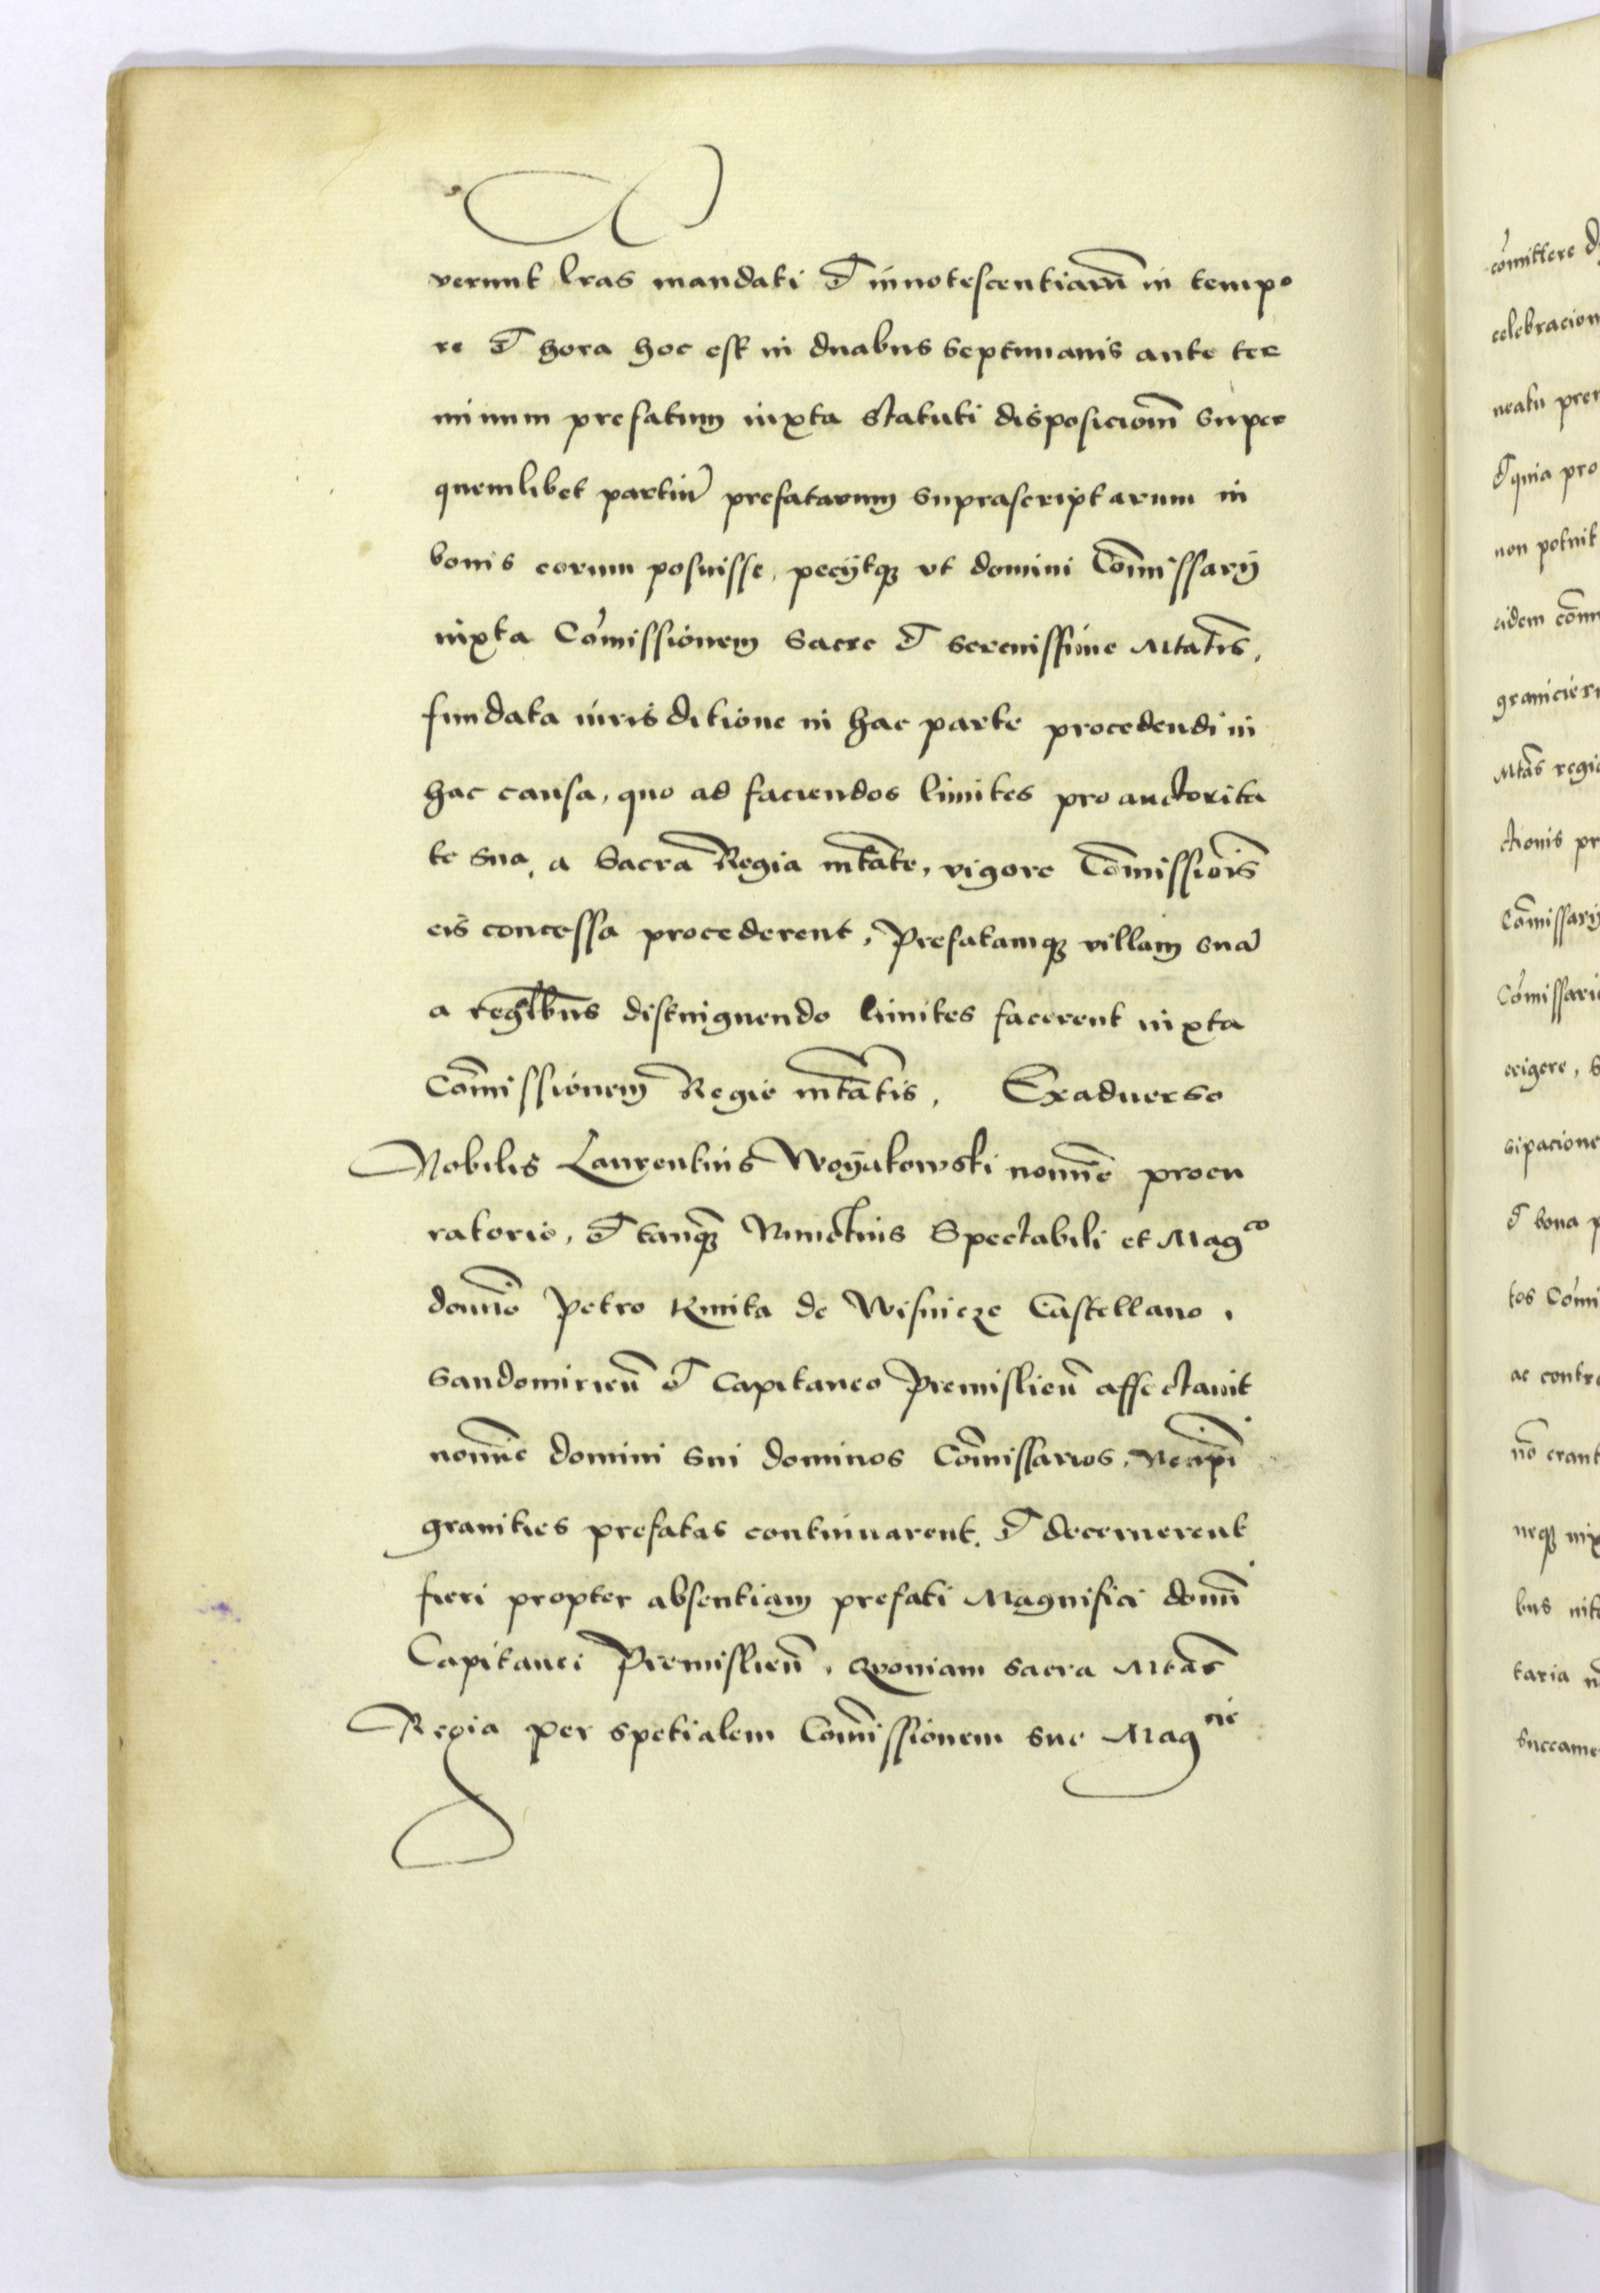 verunt lras mandati et innotescentiarū in tempo
re et hora hoc est in duabus septimanis ante ter
minum prefatum iuxta statuti disposicionē super
quemlibet partiū prefatarum suprascriptarum in
bonis eorum posuisse, pecijtqꝫ vt domini Cōmissarij
iuxta Cōmissionem Sacre et serenissime Mtatis,
fundata iurisditione in hac parte procedendi in
hac causa, quo ad faciendos limites pro auctorita
te sua, a Sacra Regia mtate, vigore Cōmissiōis
eis concessa procederent, Prefatamqꝫ villam suā
a regalibus distinguendo limites facerent iuxta
Cōmissionem Regie mtatis, Exaduerso
Nobilis Laurentius Woyakowski nomīe procu
ratorio, et tanqꝫ Nunctius Spectabili et Magco
domīo Petro Kmita de Wisnicze Castellano
Sandomirieñ et Capitaneo Premislieñ affectauit
nomīe domini sui dominos Cōmissarios, Ne ip̄i
granities prefatas continuarent, et decernerent
fieri propter absentiam prefati Magnifici domī
Capitanei Premislieñ, Quoniam sacra Mtas
Regia per spetialem Cōmissionem sue Magcie
cōmittere
celebracion
neatu prem
et quia pro
non potuit
eidem cōmi
granicier
Mtas regia
ctionis pr
Cōmissarij
Cōmissari
erigere, s
sipacione
et bona p
tos Cōmi
ac contra
nō erant
neqꝫ iux
bus
taria